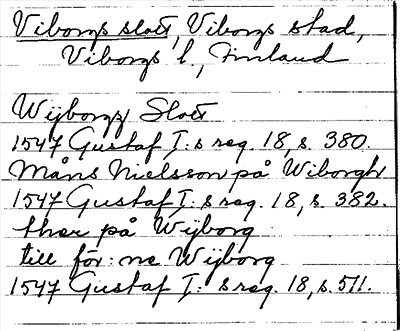 Viborgs slott, Viborgs stad,
Viborgs l., Finland
Wijborgz Slott
1547 Gustaf I:s reg. 18, s. 380.
Måns Nielsson på Wiborgh
1547 Gustaf I:s reg. 18, s. 382.
ther på Wijborg
till för:ne Wijborg
1547 Gustaf I:s reg. 18, s. 511.